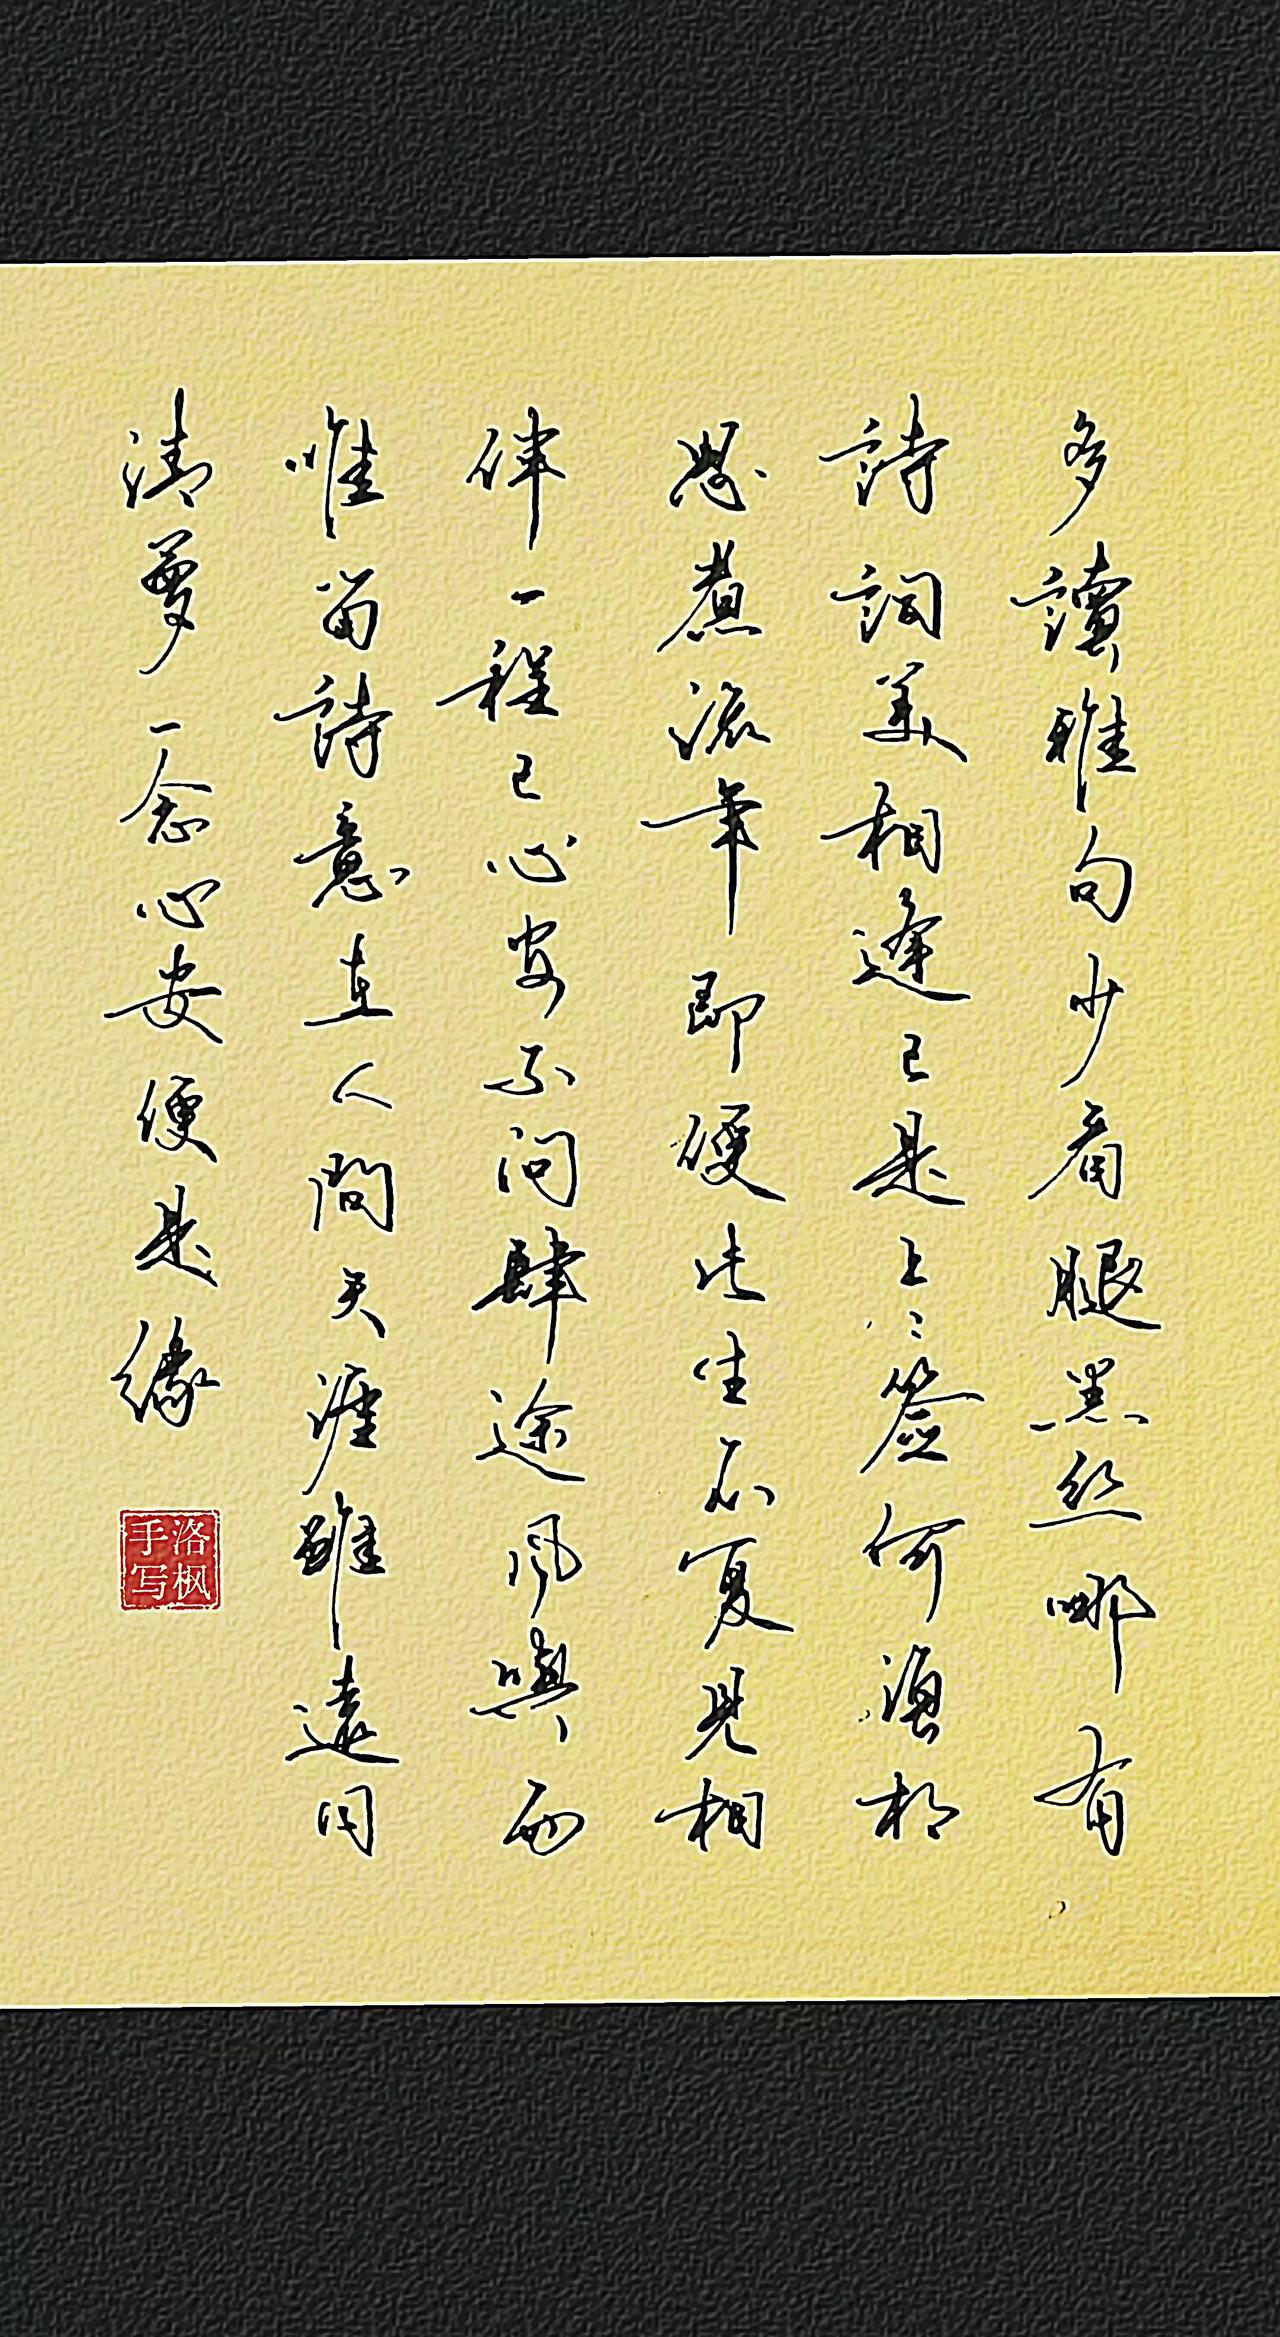 多讀雅句少看腿黑丝哪有
詩詞美相逢已是上上簽何須相
思煮流年即便此生不复見相
伴一程已心安不问歸途风與雨
唯留詩意在人間天涯雖遠同
清夢一念心安便是緣
洛枫
手写